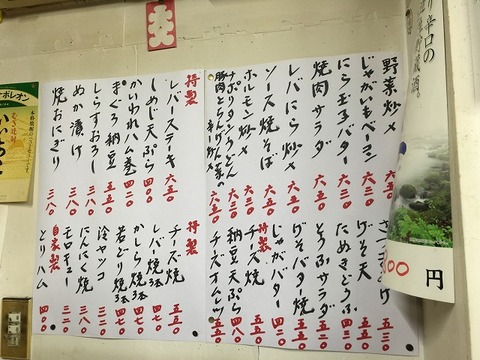 野菜炒メ 六五〇
じゃがいもベーコン
にら玉子バター 六五〇
焼肉サラダ 六五〇
レバにら炒メ 六五〇
ソース焼そば 六五〇
ホルモン炒メ 六五〇
ナポリタンうどん 六五〇
特製
レバーステーキ 六五〇
しめじ天ぷら 四五〇
かいわれハム巻 四二〇
まぐろ納豆 四五〇
しらすおろし 三八〇
めか漬け 三八〇
焼おにぎり 三八〇
げそ天 五五〇
たぬきどうふ 四二〇
とうふサラダ 五五〇
げそバター焼 五五〇
じゃがバター 四二〇
特製
チーズ焼 五五〇
納豆天ぷら 四八〇
チーズオムレツ 五五〇
特製
チーズ焼 五五〇
レバー焼 四七〇
かしら焼 四七〇
若どり焼 四七〇
冷ヤッコ 三二〇
にんにく焼 三八〇
モロキュー 三二〇
自家製
とりハム 四〇〇
り辛口の
貯蔵酒。
00円
ナポレオン